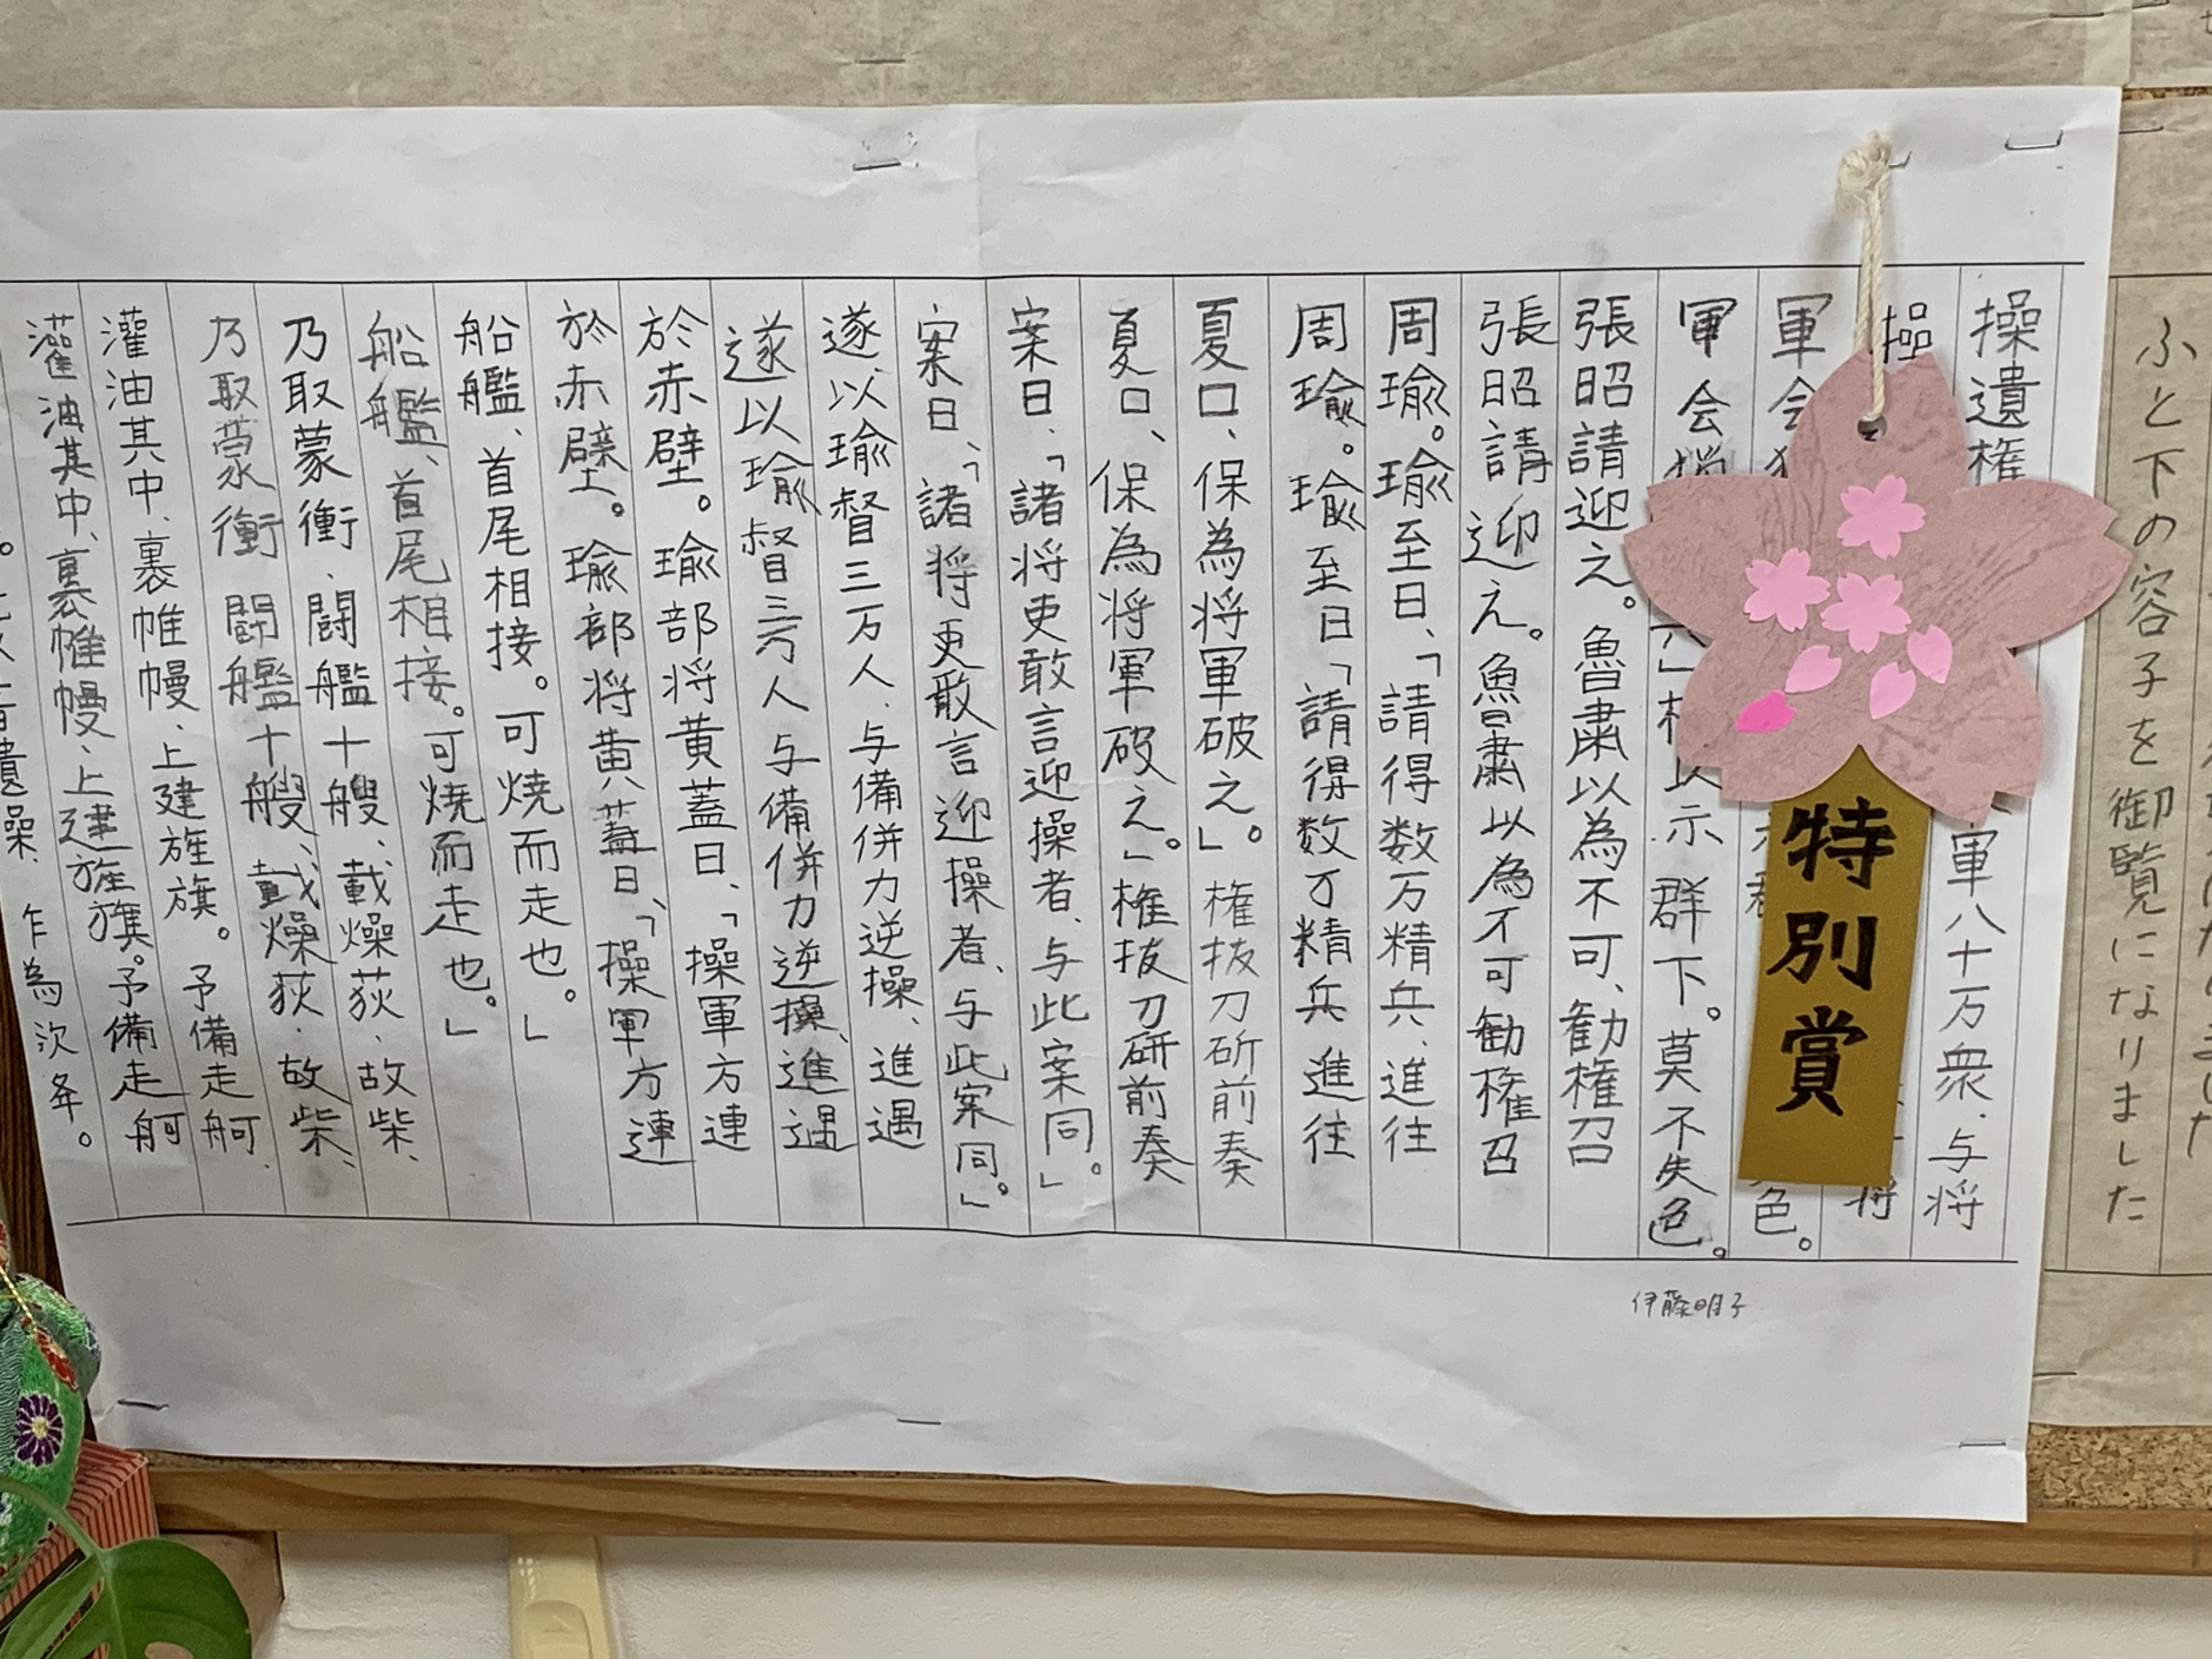 ふと下の容子を御覧になりました
操遺権
軍八十万衆、与将
操
将
軍会
色。
軍会猟
以示群下。莫不失色。
張昭請迎之。魯粛以為不可、勧権召
張昭請迎之。魯粛以為不可勧権召
周瑜。瑜至曰、「請得数万精兵、進往
周瑜。瑜至曰「請得数万精兵進往
夏口、保為将軍破之。」権抜刀斫前奏
夏口、保為将軍破之。」権抜刀斫前奏
案曰、「諸将吏敢言迎操者、与此案同。」
案曰、「諸将吏敢言迎操者、与此案同。」
遂以瑜督三万人、与備併力逆操、進遇
遂以瑜督三万人与備併力逆操、進遇
於赤壁。瑜部将黄蓋曰、「操軍方連
於赤壁。瑜部将黄蓋曰、「操軍方連
船艦、首尾相接。可焼而走也。」
船艦、首尾相接。可焼而走也。」
乃取蒙衝、闘艦十艘、載燥荻、故柴、
乃取蒙衝闘艦十艘、載燥荻、故柴、
灌油其中、裹帷幔、上建旌旗。予備走舸、
灌油其中、裹帷幔、上建旌旗。予備走舸
遺操、乍為次年。
特別賞
伊藤明子